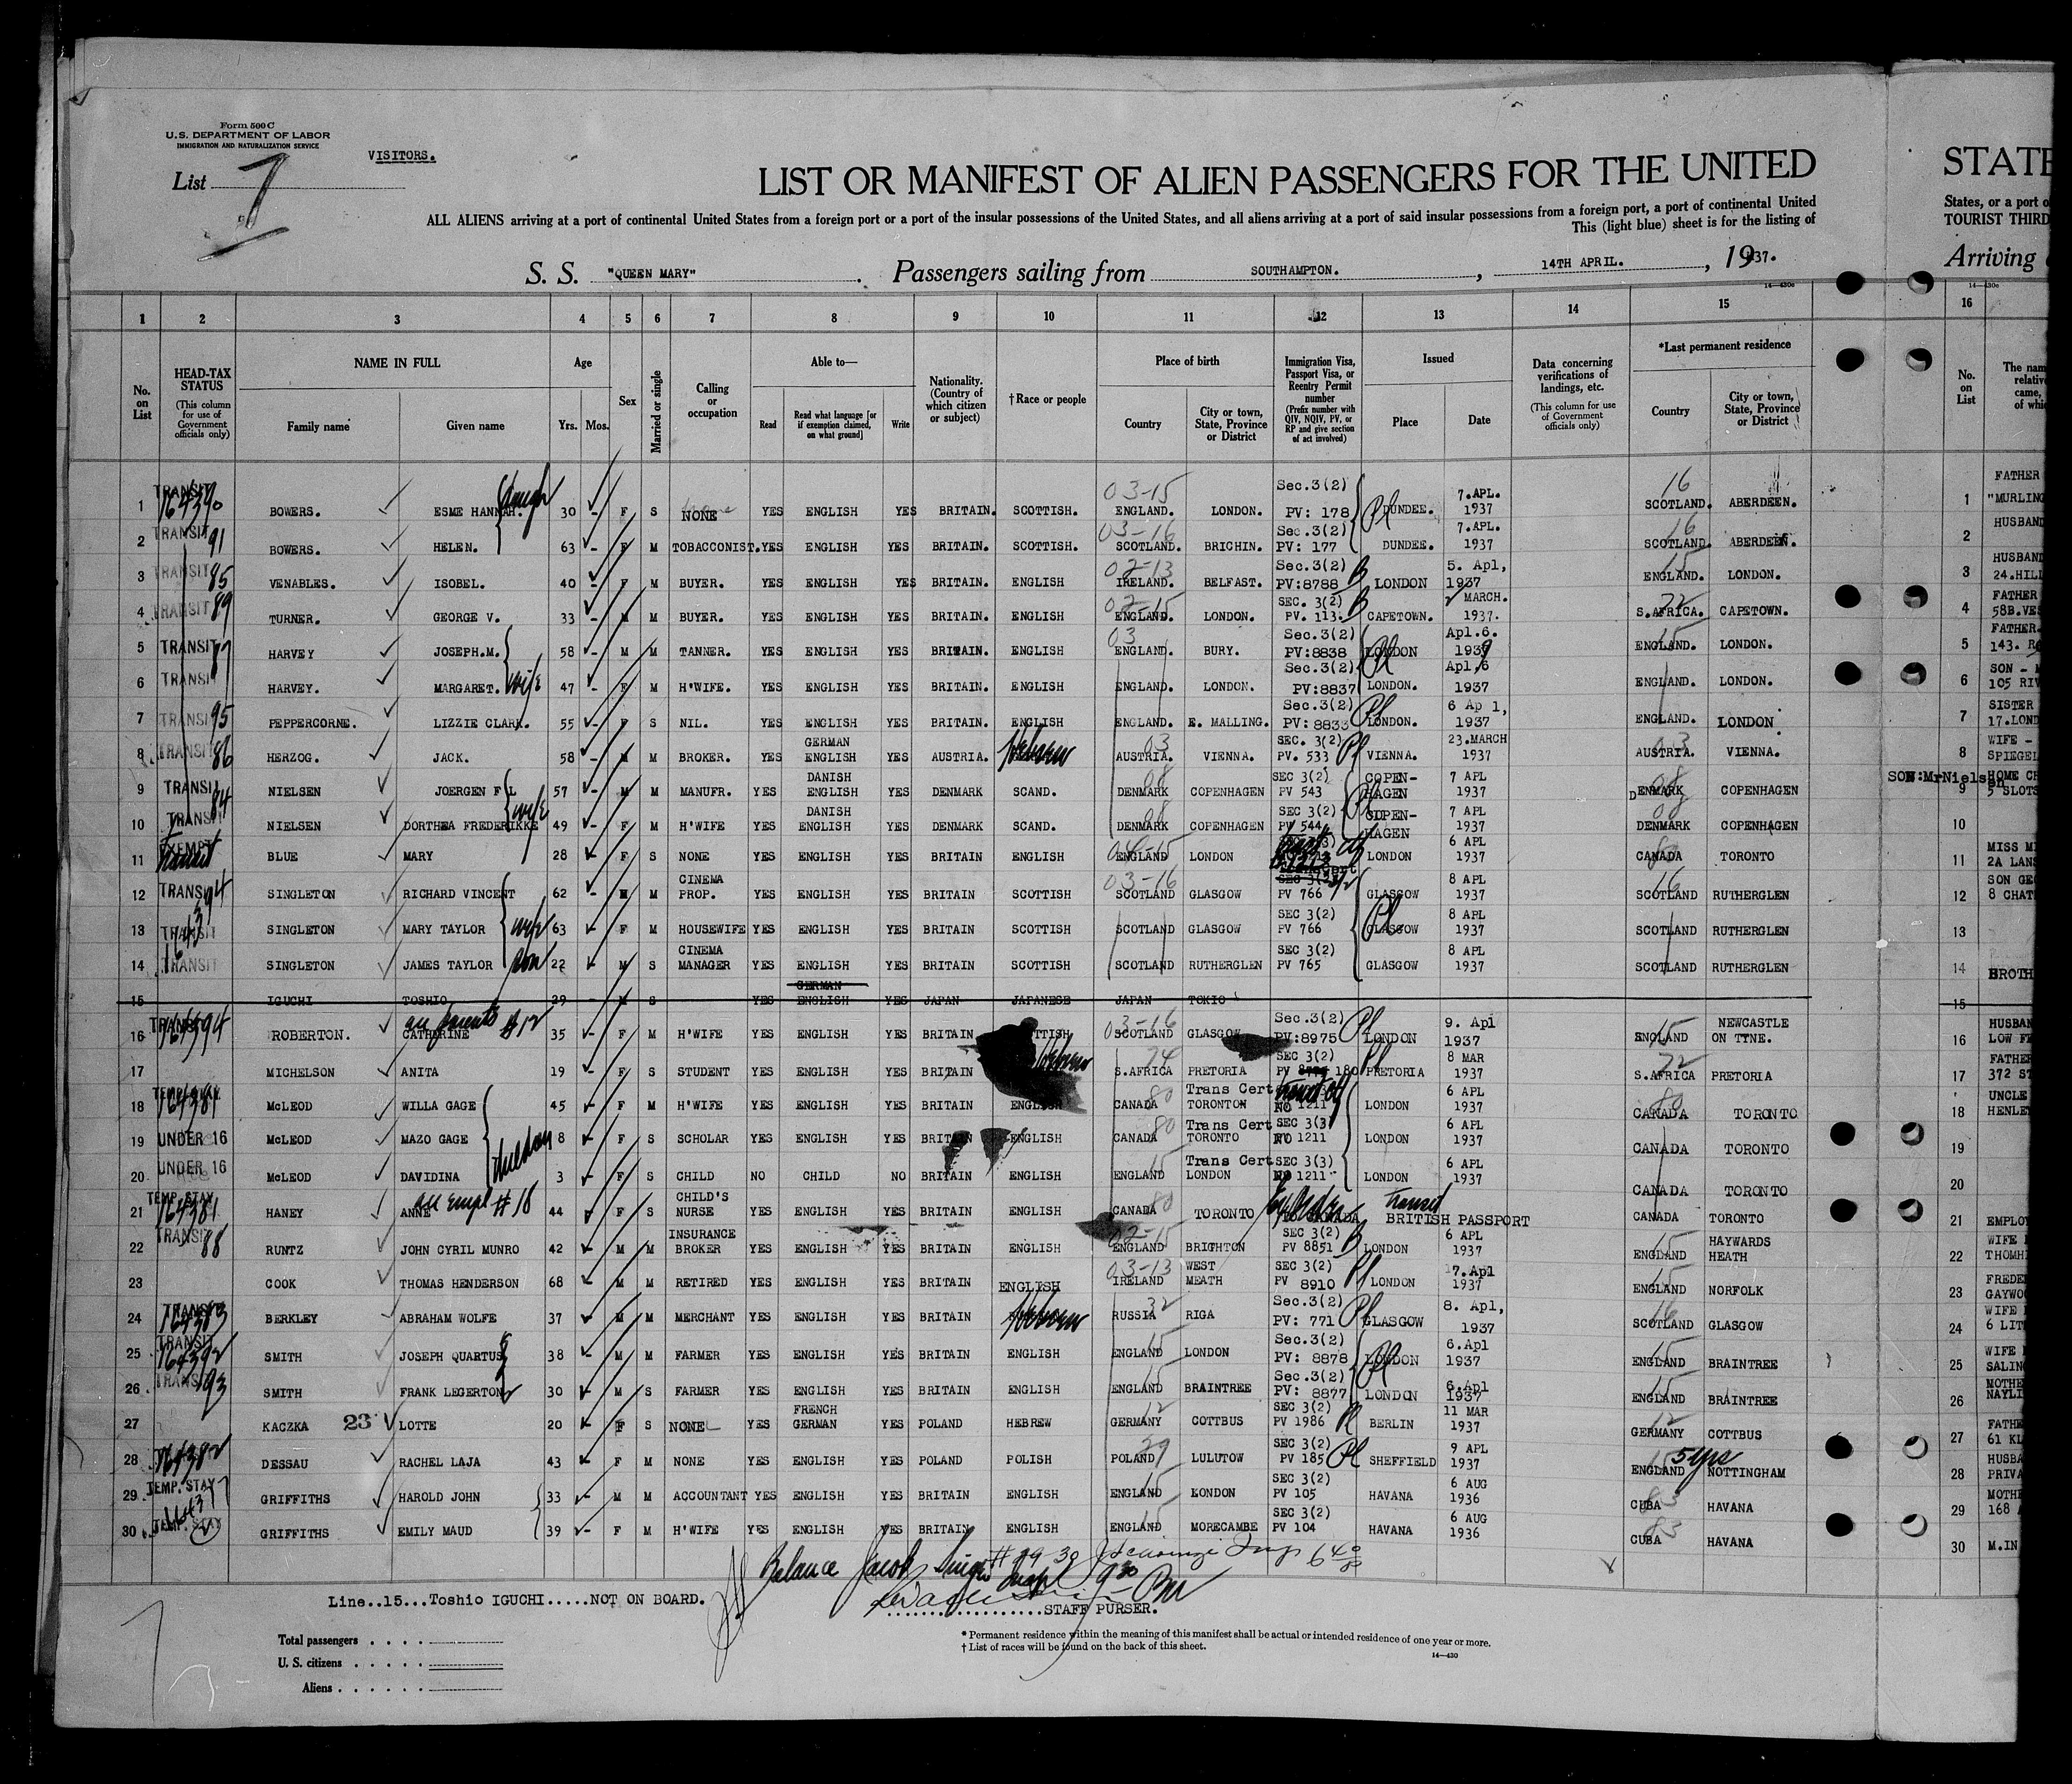 Form 500 C
U.S. DEPARTMENT OF LABOR
IMMIGRATION AND NATURALIZATION SERVICE
VISITORS.
List 7
LIST OR MANIFEST OF ALIEN PASSENGERS FOR THE UNITED
STATE
ALL ALIENS arriving at a port of continental United States from a foreign port or a port of the insular possessions of the United States, and all aliens arriving at a port of said insular possessions from a foreign port, a port of continental United
States, or a port o
This (light blue) sheet is for the listing of
TOURIST THIRD
S. S. "QUEEN MARY" . Passengers sailing from SOUTHAMPTON. , 14TH APRIL. , 1937.
Arriving
14—430c
1 2 3 4 5 6 7 8 9 10 11 12 13 14 15 16
No. on List
HEAD-TAX STATUS
(This column for use of Government officials only)
NAME IN FULL
Family name
Given name
Age
Yrs. Mos.
Sex
Married or single
Calling or occupation
Able to—
Read
Read what language [or if exemption claimed, on what ground]
Write
Nationality. (Country of which citizen or subject)
†Race or people
Place of birth
Country
City or town, State, Province or District
Immigration Visa, Passport Visa, or Reentry Permit number
(Prefix number with QIV, NQIV, PV, or RP and give section of act involved)
Issued
Place
Date
Data concerning verifications of landings, etc.
(This column for use of Government officials only)
*Last permanent residence
Country
City or town, State, Province or District
No. on List
The nam
relativ
came,
of whic
1 TRANSIT 164390 BOWERS. ESME HANNAH. daugh 30 - F S NONE YES ENGLISH YES BRITAIN. SCOTTISH. 03-15 ENGLAND. LONDON. Sec.3(2) PV: 178 DUNDEE. 7.APL. 1937 16 SCOTLAND. ABERDEEN. 1 FATHER "MURLING
2 TRANSIT 91 BOWERS. HELEN. 63 - F M TOBACCONIST. YES ENGLISH YES BRITAIN. SCOTTISH. 03-16 SCOTLAND. BRICHIN. Sec.3(2) PV: 177 DUNDEE. 7.APL. 1937 16 SCOTLAND. ABERDEEN. 2 HUSBAND
3 TRANSIT 85 VENABLES. ISOBEL. 40 - F M BUYER. YES ENGLISH YES BRITAIN. ENGLISH 02-13 IRELAND. BELFAST. Sec.3(2) PV:8788 LONDON 5. Apl, 1937 15 ENGLAND. LONDON. 3 HUSBAND 24.HILL
4 TRANSIT 89 TURNER. GEORGE V. 33 - M M BUYER. YES ENGLISH YES BRITAIN. ENGLISH 02-15 ENGLAND. LONDON. SEC. 3(2) PV. 113. CAPETOWN. MARCH. 1937. 72 S.AFRICA. CAPETOWN. 4 FATHER 58B.VES
5 TRANSIT 87 HARVEY JOSEPH.M. 58 - M M TANNER. YES ENGLISH YES BRITAIN. ENGLISH 03 ENGLAND. BURY. Sec.3(2) PV:8838 LONDON Apl.6. 1937 15 ENGLAND. LONDON. 5 FATHER. 143. R
6 TRANSIT HARVEY. MARGARET. wife 47 - F M H'WIFE. YES ENGLISH YES BRITAIN. ENGLISH ENGLAND. LONDON. Sec.3(2) PV:8837 LONDON. Apl,6 1937 ENGLAND. LONDON. 6 SON - 105 RIV
7 TRANSIT 95 PEPPERCORNE. LIZZIE CLARK. 55 - F S NIL. YES ENGLISH YES BRITAIN. ENGLISH ENGLAND. E. MALLING. Sec.3(2) PV:8833 LONDON. 6 Ap 1, 1937 ENGLAND. LONDON 7 SISTER 17.LOND
8 TRANSIT 86 HERZOG. JACK. 58 - M M BROKER. YES GERMAN ENGLISH YES AUSTRIA. Hebrew 03 AUSTRIA. VIENNA. SEC. 3(2) PV. 533 VIENNA. 23.MARCH 1937 03 AUSTRIA. VIENNA. 8 WIFE - SPIEGEL
9 TRANSIT NIELSEN JOERGEN F L 57 - M M MANUFR. YES DANISH ENGLISH YES DENMARK SCAND. 08 DENMARK COPENHAGEN SEC 3(2) PV 543 COPEN-HAGEN 7 APL 1937 08 DENMARK COPENHAGEN SON:MrNielsen 9 HOME CH 5 SLOTS
10 TRANSIT 84 NIELSEN DORTHEA FREDERIKKE wife 49 - F M H'WIFE YES DANISH ENGLISH YES DENMARK SCAND. 08 DENMARK COPENHAGEN SEC 3(2) PV 544 COPEN-HAGEN 7 APL 1937 08 DENMARK COPENHAGEN 10
11 EXEMPT transit BLUE MARY 28 - F S NONE YES ENGLISH YES BRITAIN ENGLISH 04-15 ENGLAND LONDON LONDON 6 APL 1937 80 CANADA TORONTO 11 MISS M 2A LANS
12 TRANSIT 94 SINGLETON RICHARD VINCENT 62 - M M CINEMA PROP. YES ENGLISH YES BRITAIN SCOTTISH 03-16 SCOTLAND GLASGOW SEC 3(2) PV 766 GLASGOW 8 APL 1937 16 SCOTLAND RUTHERGLEN 12 SON GEO 8 CHAT
13 TRANSIT SINGLETON MARY TAYLOR wife 63 - F M HOUSEWIFE YES ENGLISH YES BRITAIN SCOTTISH SCOTLAND GLASGOW SEC 3(2) PV 766 GLASGOW 8 APL 1937 SCOTLAND RUTHERGLEN 13
14 TRANSIT SINGLETON JAMES TAYLOR son 22 - M S CINEMA MANAGER YES ENGLISH YES BRITAIN SCOTTISH SCOTLAND RUTHERGLEN SEC 3(2) PV 765 GLASGOW 8 APL 1937 SCOTLAND RUTHERGLEN 14 BROTH
15 IGUCHI TOSHIO 29 - M S YES GERMAN ENGLISH YES JAPAN JAPANESE JAPAN TOKIO 15
16 164394 ROBERTON. CATHERINE acc parents #12 35 - F M H'WIFE YES ENGLISH YES BRITAIN 03-16 SCOTLAND GLASGOW Sec.3(2) PV:8975 LONDON 9. Apl 1937 15 ENGLAND NEWCASTLE ON TYNE. 16 HUSBAN LOW FE
17 MICHELSON ANITA 19 - F S STUDENT YES ENGLISH YES BRITAIN Hebrew 74 S.AFRICA PRETORIA SEC 3(2) PV 180 PRETORIA 8 MAR 1937 72 S.AFRICA PRETORIA 17 FATHER 372 ST
18 TEMP. STAY 164381 McLEOD WILLA GAGE 45 - F M H'WIFE YES ENGLISH YES BRITAIN ENGLISH 80 CANADA TORONTON Trans Cert NO 1211 LONDON 6 APL 1937 80 CANADA TORONTO 18 UNCLE HENLEY
19 UNDER 16 McLEOD MAZO GAGE children 8 - F S SCHOLAR YES ENGLISH YES BRITAIN ENGLISH 80 CANADA TORONTO Trans Cert SEC 3(3) NO 1211 LONDON 6 APL 1937 CANADA TORONTO 19
20 UNDER 16 McLEOD DAVIDINA 3 - F S CHILD NO CHILD NO BRITAIN ENGLISH 15 ENGLAND LONDON Trans Cert SEC 3(3) NO 1211 LONDON 6 APL 1937 CANADA TORONTO 20
21 TEMP. STAY 164381 HANEY ANNE acc empl #18 44 - F S CHILD'S NURSE YES ENGLISH YES BRITAIN ENGLISH 80 CANADA TORONTO TO CANADA transit BRITISH PASSPORT CANADA TORONTO 21 EMPLOY
22 TRANSIT 88 RUNTZ JOHN CYRIL MUNRO 42 - M M INSURANCE BROKER YES ENGLISH YES BRITAIN ENGLISH 02-15 ENGLAND BRIGHTON SEC 3(2) PV 8851 LONDON 6 APL 1937 15 ENGLAND HAYWARDS HEATH 22 WIFE THOMHI
23 COOK THOMAS HENDERSON 68 - M M RETIRED YES ENGLISH YES BRITAIN ENGLISH 03-13 IRELAND WEST MEATH SEC 3(2) PV 8910 LONDON 7.Apl 1937 15 ENGLAND NORFOLK 23 FREDER GAYWOO
24 TRANSIT 164383 BERKLEY ABRAHAM WOLFE 37 - M M MERCHANT YES ENGLISH YES BRITAIN Hebrew 32 RUSSIA RIGA Sec.3(2) PV: 771 GLASGOW 8. Apl, 1937 16 SCOTLAND GLASGOW 24 WIFE 6 LIT
25 TRANSIT 164392 SMITH JOSEPH QUARTUS 38 - M M FARMER YES ENGLISH YES BRITAIN ENGLISH 15 ENGLAND LONDON Sec.3(2) PV: 8878 LONDON 6.Apl 1937 15 ENGLAND BRAINTREE 25 WIFE SALING
26 TRANSIT 93 SMITH FRANK LEGERTON 30 - M S FARMER YES ENGLISH YES BRITAIN ENGLISH 15 ENGLAND BRAINTREE Sec.3(2) PV: 8877 LONDON 6.Apl 1937 15 ENGLAND BRAINTREE 26 MOTHE NAYLI
27 KACZKA 23 LOTTE 20 - F S NONE YES FRENCH GERMAN YES POLAND HEBREW 12 GERMANY COTTBUS SEC 3(2) PV 1986 BERLIN 11 MAR 1937 12 GERMANY COTTBUS 27 FATHE 61 KL
28 164382 DESSAU RACHEL LAJA 43 - F M NONE YES ENGLISH YES POLAND POLISH 29 POLAND LULUTOW SEC 3(2) PV 185 SHEFFIELD 9 APL 1937 15 5 yrs ENGLAND NOTTINGHAM 28 HUSBA PRIVA
29 TEMP. STAY GRIFFITHS HAROLD JOHN 33 - M M ACCOUNTANT YES ENGLISH YES BRITAIN ENGLISH 15 ENGLAND LONDON SEC 3(2) PV 105 HAVANA 6 AUG 1936 83 CUBA HAVANA 29 MOTHE 168
30 TEMP. STAY GRIFFITHS EMILY MAUD 39 - F M H'WIFE YES ENGLISH YES BRITAIN ENGLISH 15 ENGLAND MORECAMBE SEC 3(2) PV 104 HAVANA 6 AUG 1936 83 CUBA HAVANA 30 M.IN
Balance Jacob # 29, 30
Line..15...Toshio IGUCHI.....NOT ON BOARD.
STAFF PURSER.
Total passengers
U. S. citizens
Aliens
* Permanent residence within the meaning of this manifest shall be actual or intended residence of one year or more.
† List of races will be found on the back of this sheet.
14—430